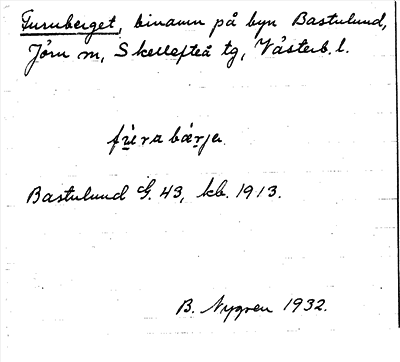 Furuberget, binamn på byn Bastulund,
Jörn sn, Skellefteå tg, Västerb. l.
Bastulund G. 43, kb. 1913.
B. Nygren 1932.